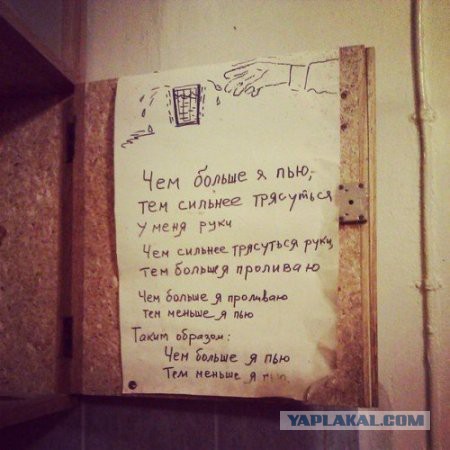 Чем больше я пью,
тем сильнее трясуться
у меня руки
Чем сильнее трясуться руки,
тем больше я проливаю
Чем больше я проливаю
тем меньше я пью
Таким образом:
Чем больше я пью
Тем меньше я пью
YAPLAKAL.COM